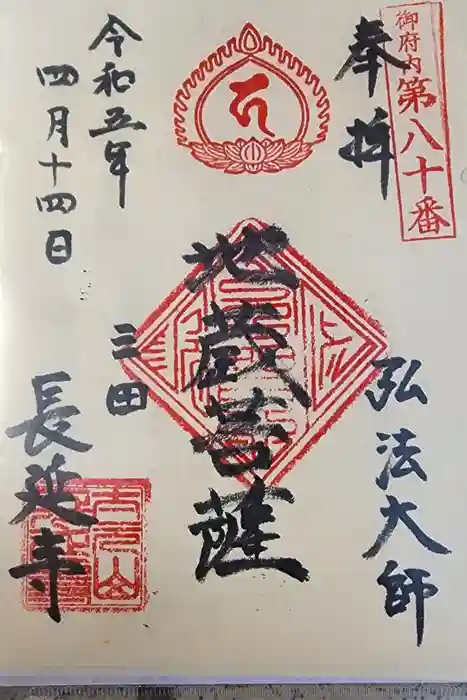 御府内第八十番
奉拝
弘法大師
地蔵菩薩
三田
長延寺
令和五年
四月十四日